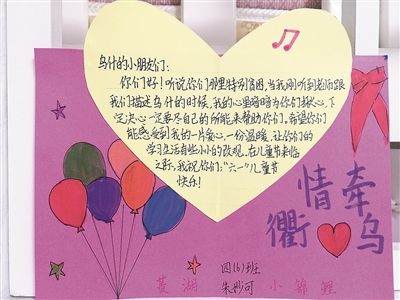 乌什的小朋友们：
你们好！听说你们那里特别贫困，当我刚听到老师跟
我们描述乌什的时候，我的心里暗暗为你们揪心，下
定决心一定要尽自己的所能来帮助你们。希望你们
能感受到我的一片爱心，一份温暖，让你们的
学习生活有些小小的改观。在儿童节来临
之际，我祝你们：“六一”儿童节
快乐！
情牵
衢乌
四(6)班
菱湖 朱妙可 小锦鲤